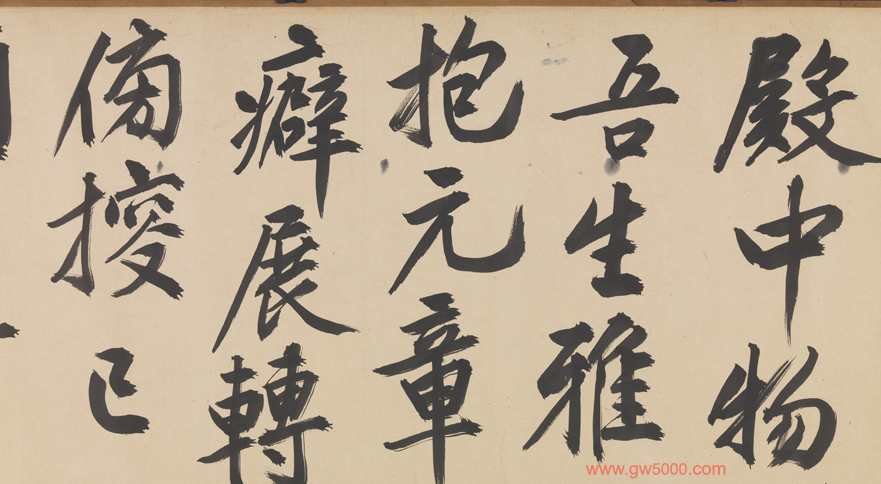 殿中物
吾生雅
抱元章
癖展轉
傍搜已
www.gw5000.com